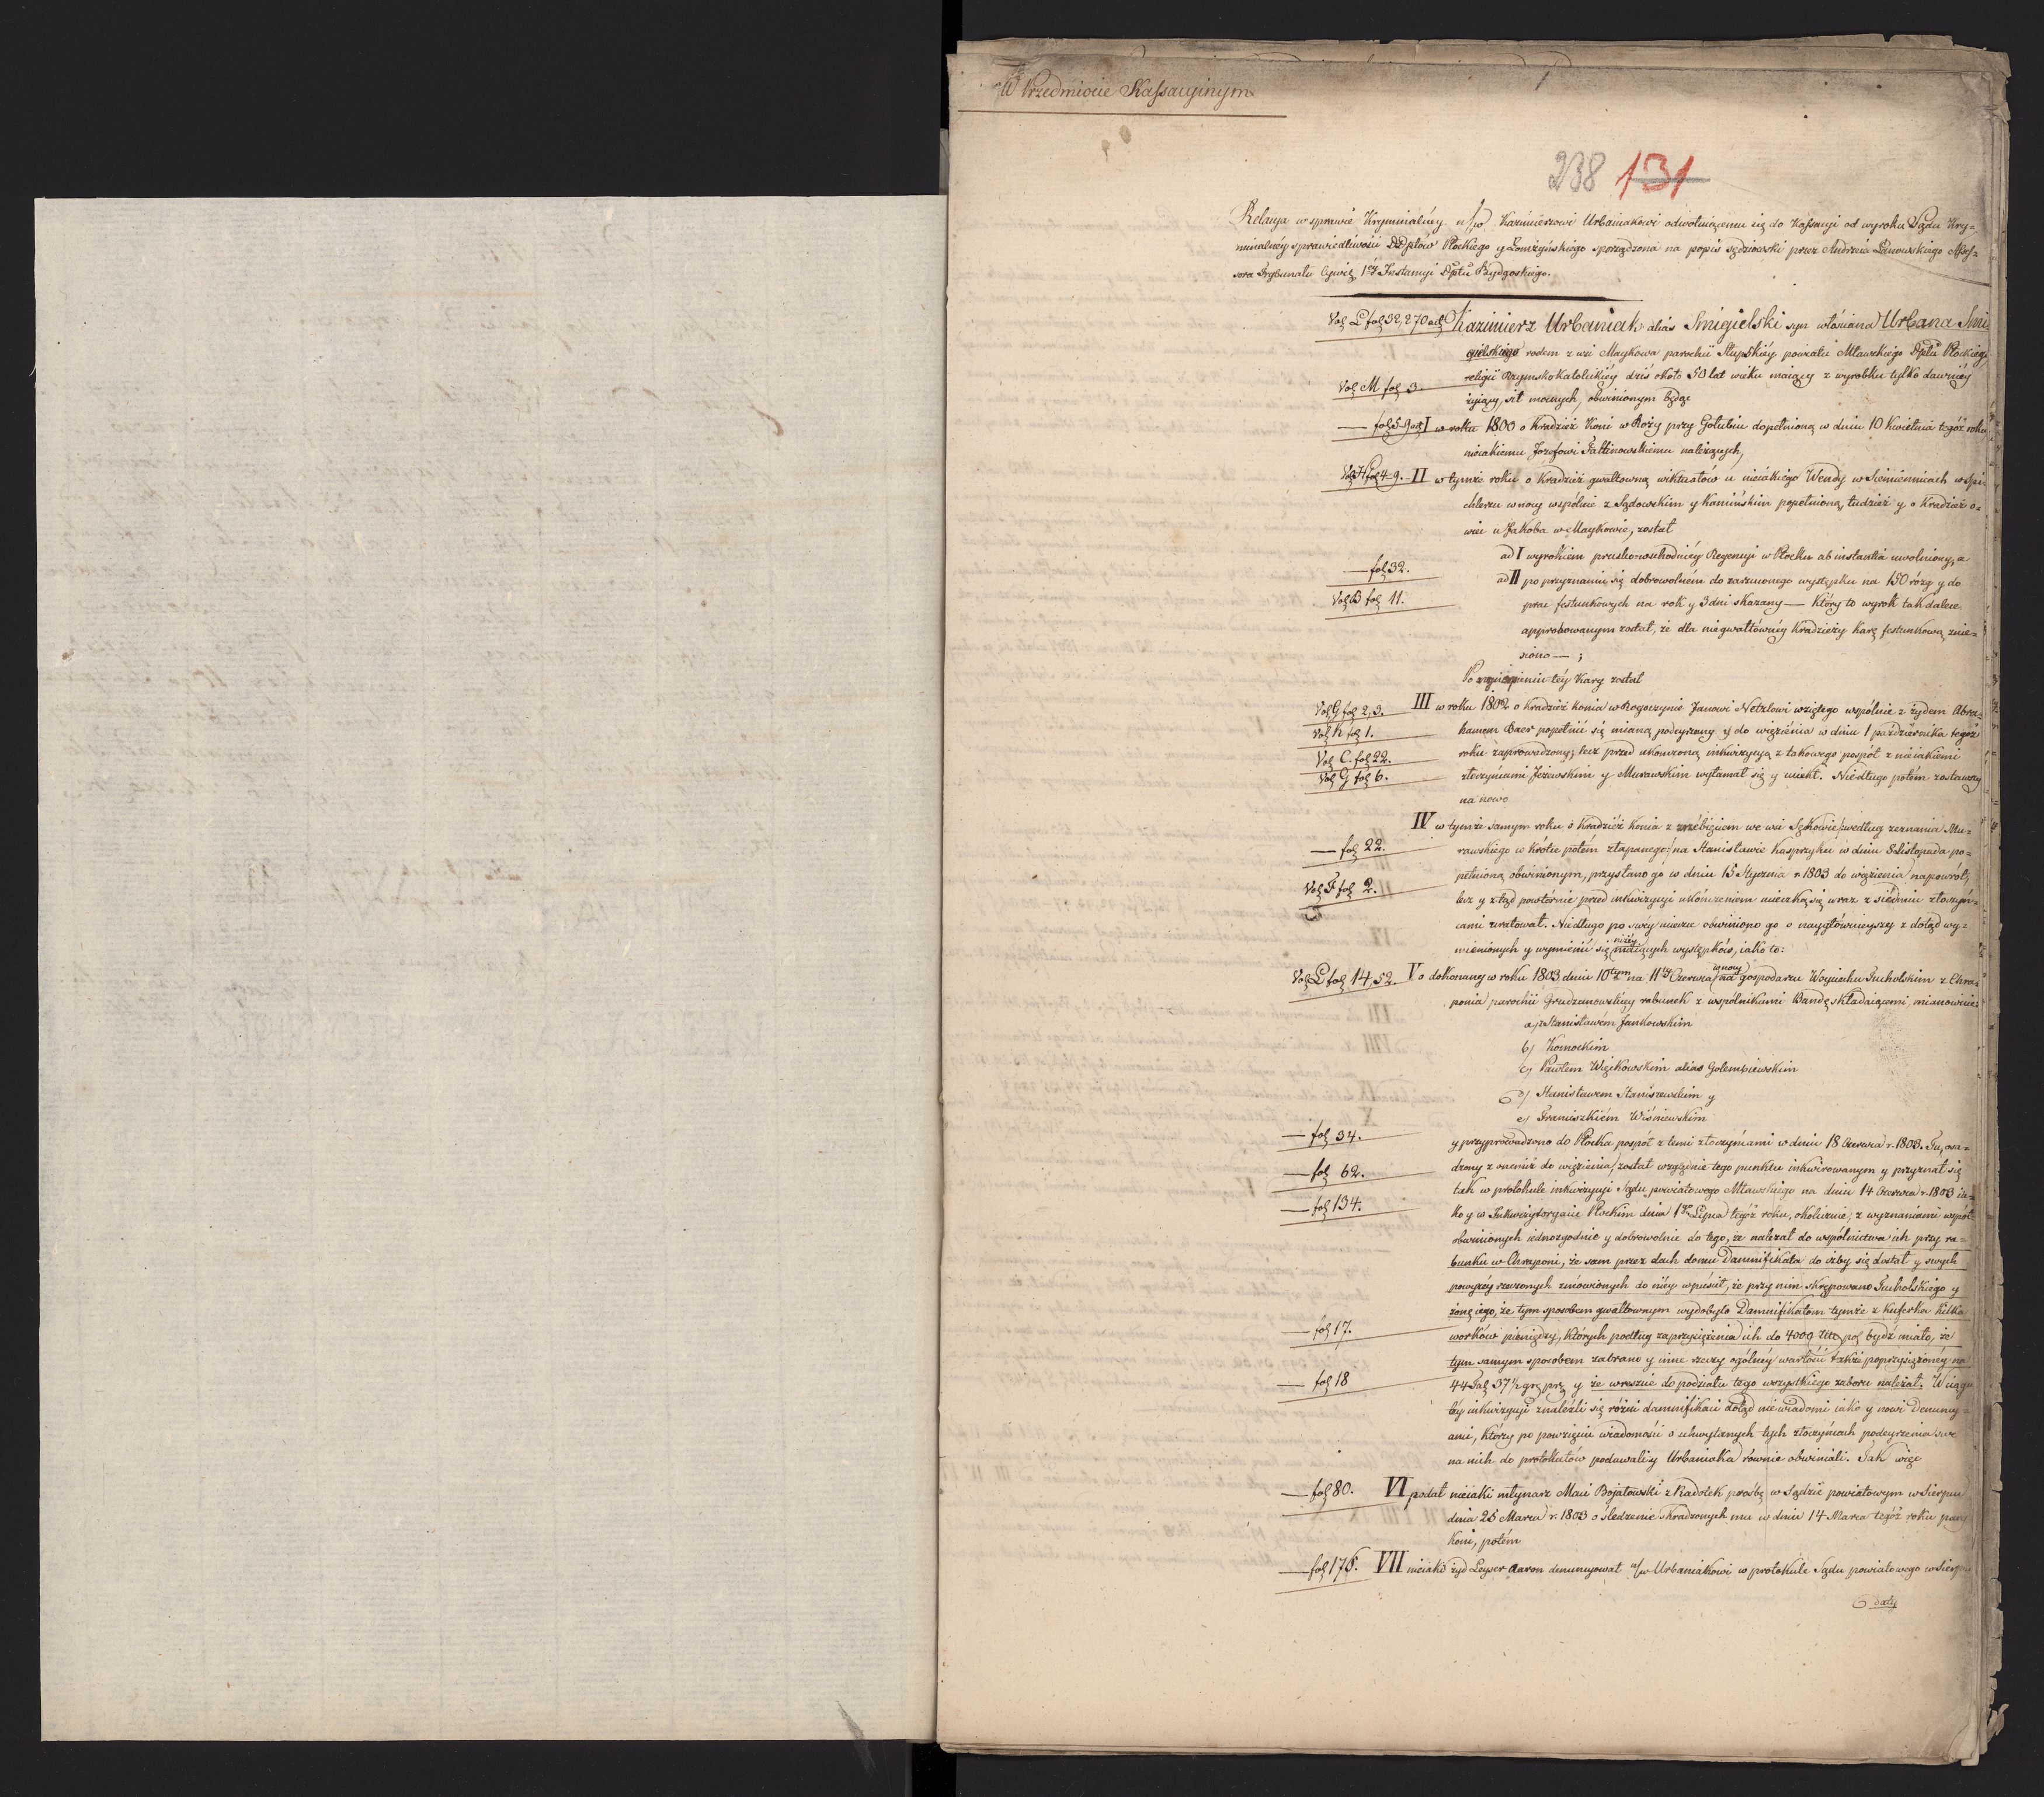 W Przedmiocie Kassacyinym
238 131
Relacya w sprawie Kryminalnéy n/go Kazimierzowi Urbaniakowi odwołuiącemu się do Kassacyi od wyroku Sądu Kry-
minalnéy sprawiedliwości DDptów Płockiego y Łomżyńskiego sporządzona na popis sędziowski przez Andrzeia Assess-
sora Trybunału Cywil. 1éy Instancyi Dptu Bydgoskiego.
Vol. L fol. 32, 270 Kazimierz Urbaniak alias Smigielski syn włościana Urbana Smi-
gielskiego rodem z wsi Maykowa parochii Słupskiéy powiatu Mławskiego Dptu Płockieg
religii Rzymskokatolickiéy dziś około 50 lat wieku maiący z wyrobku tylko dawniéy
Vol. M fol. 3.
żyiący, sił mocnych, obwinionym będąc
— fol. 5-9 I w roku 1800 o kradzież koni w Róży przy Golubiu dopełnioną w dniu 10 Kwietnia tegoż roku
nieiakiemu Jozefowi Faltinowskiemu należących,
Vol. H fol. 4-9. II w tymże roku o kradzież gwałtowną wiktuałów u nieiakiego Wendy w Siemiennicach w spi-
chlerzu w nocy wspólnie z Sądowskim y Kamińskim popełnioną, tudzież y o kradzież o-
wiec u Jakoba w Maykowie, został
ad I wyrokiem pruskowschodniéy Regencyi w Płocku ab instantia uwolniony, a
— fol. 32.
ad II po przyznaniu się dobrowolném do zarzuconego występku na 150 rózg y do
Vol. B fol. 11.
prac festunkowych na rok y 3 dni skazany — który to wyrok tak dalece
approbowanym został, że dla niegwałtównéy kradzieży karę festunkową znie-
siono — ;
Po wycierpieniu téy kary został
Vol. G fol. 2, 3. III w roku 1802 o kradzież konia w Rogoczynie Janowi Netzlowi wziętego wspólnie z żydem Abra-
Vol. K fol. 1.
hamem Baer popełnić się mianą podeyrzany y do więzienia w dniu 1 października tegoż
Vol. C. fol. 22.
roku zaprowadzony; lecz przed ukończoną inkwizycyą z takowego pospół z nieiakiemi
Vol. G fol. 6.
złoczyńcami Jeżewskim y Murawskim wyłamał się y uciekł. Niedługo potém zostawszy
na nowo
IV w tymże samym roku o kradzież konia z źrebięciem we wsi Sękowie /według zeznania Mu-
— fol. 22.
rawskiego w krótce potém złapanego:/ na Stanisławie Kasprzyku w dniu 8 Listopada po-
Vol. F fol. 2.
pełnioną obwinionym, przysłano go w dniu 15 Stycznia r. 1803 do więzienia napowrót;
lecz y ztąd powtórnie przed inkwizycyi ukończeniem ucieczką się wraz z siedmiu złoczyń-
cami zratował. Niedługo po swéy ucieczce obwiniono go o naygłównieyszy z dotąd wy-
mienionych y wymienić się niżéy maiących występków, iako to:
Vol. L fol. 14, 52. V o dokonany w roku 1803 dniu 10tym na 11ty Czerwca w nocy na gospodarzu Woyciechu Tucholskim z Chra-
ponia parochii Grudzunowskiéy rabunek z wspólnikami Bandę składaiącemi, mianowicie:
a) z Stanisławém Jankowskim
b) Komockim
c) Pawłem Więckowskim alias Golembiewskim
d) Stanisławem Staniszewskim y
e) Franciszkiém Wiśniewskim
— fol. 34.
y przyprowadzono do Płocka pospół z temi złoczyńcami w dniu 18 Czerwca r. 1803. Tu, osa-
— fol. 62.
dzony z onemiż do więzienia, został względnie tego punktu inkwirowanym y przyznał się
tak w protokule inkwizycyi Sądu powiatowego Mławskiego na dniu 14 Czerwca r. 1803 ia-
— fol. 134.
ko y w Inkwizytoryacie Płockim dnia 1go Lipca tegoż roku, okolicznie; z wyznaniami współ-
obwinionych iednozgodnie y dobrowolnie do tego, że należał do wspólnictwa ich przy ra-
bunku w Chraponi, że sam przez dach domu Damnifikata do izby się dostał y swych
powyżéy rzeczonych zmówionych do niéy wpuścił, że przy nim skrępowano Tucholskiego y
żonę iego, że tym sposobem gwałtownym wydobyto Damnifikatom tymże z kuferka kilka
— fol. 17.
worków pieniędzy, których podług zaprzysiężenia ich do 4000 złt. pol. bydź miało, że
tym samym sposobem zabrano y inne rzeczy ogólnéy wartości także poprzysiężonéy na
— fol. 18
44 Tal. 37 1/2 gr. pr. y że wreszcie do podziału tego wszystkiego zaboru należał. W ciągu
téy inkwizycyi znaleźli się różni damnifikaci dotąd niewiadomi iako y nowi Denuncy-
anci, którzy po powzięciu wiadomości o uchwytanych tych złoczyńcach podeyrzenia swe
na nich do protokułów podawali y Urbaniaka równie obwiniali. Tak więc
— fol. 80. VI podał nieiaki młynarz Maci Bojatowski z Radotek prośbę w Sądzie powiatowym w Sierpcu
dnia 25 Marca r. 1803 o śledzenie skradzonych mu w dniu 14 Marca tegoż roku pary
koni, potém
— fol. 176. VII nieiaki żyd Leyser Aaron denuncyował n/w Urbaniakowi w protokule Sądu powiatowego w Sierpcu